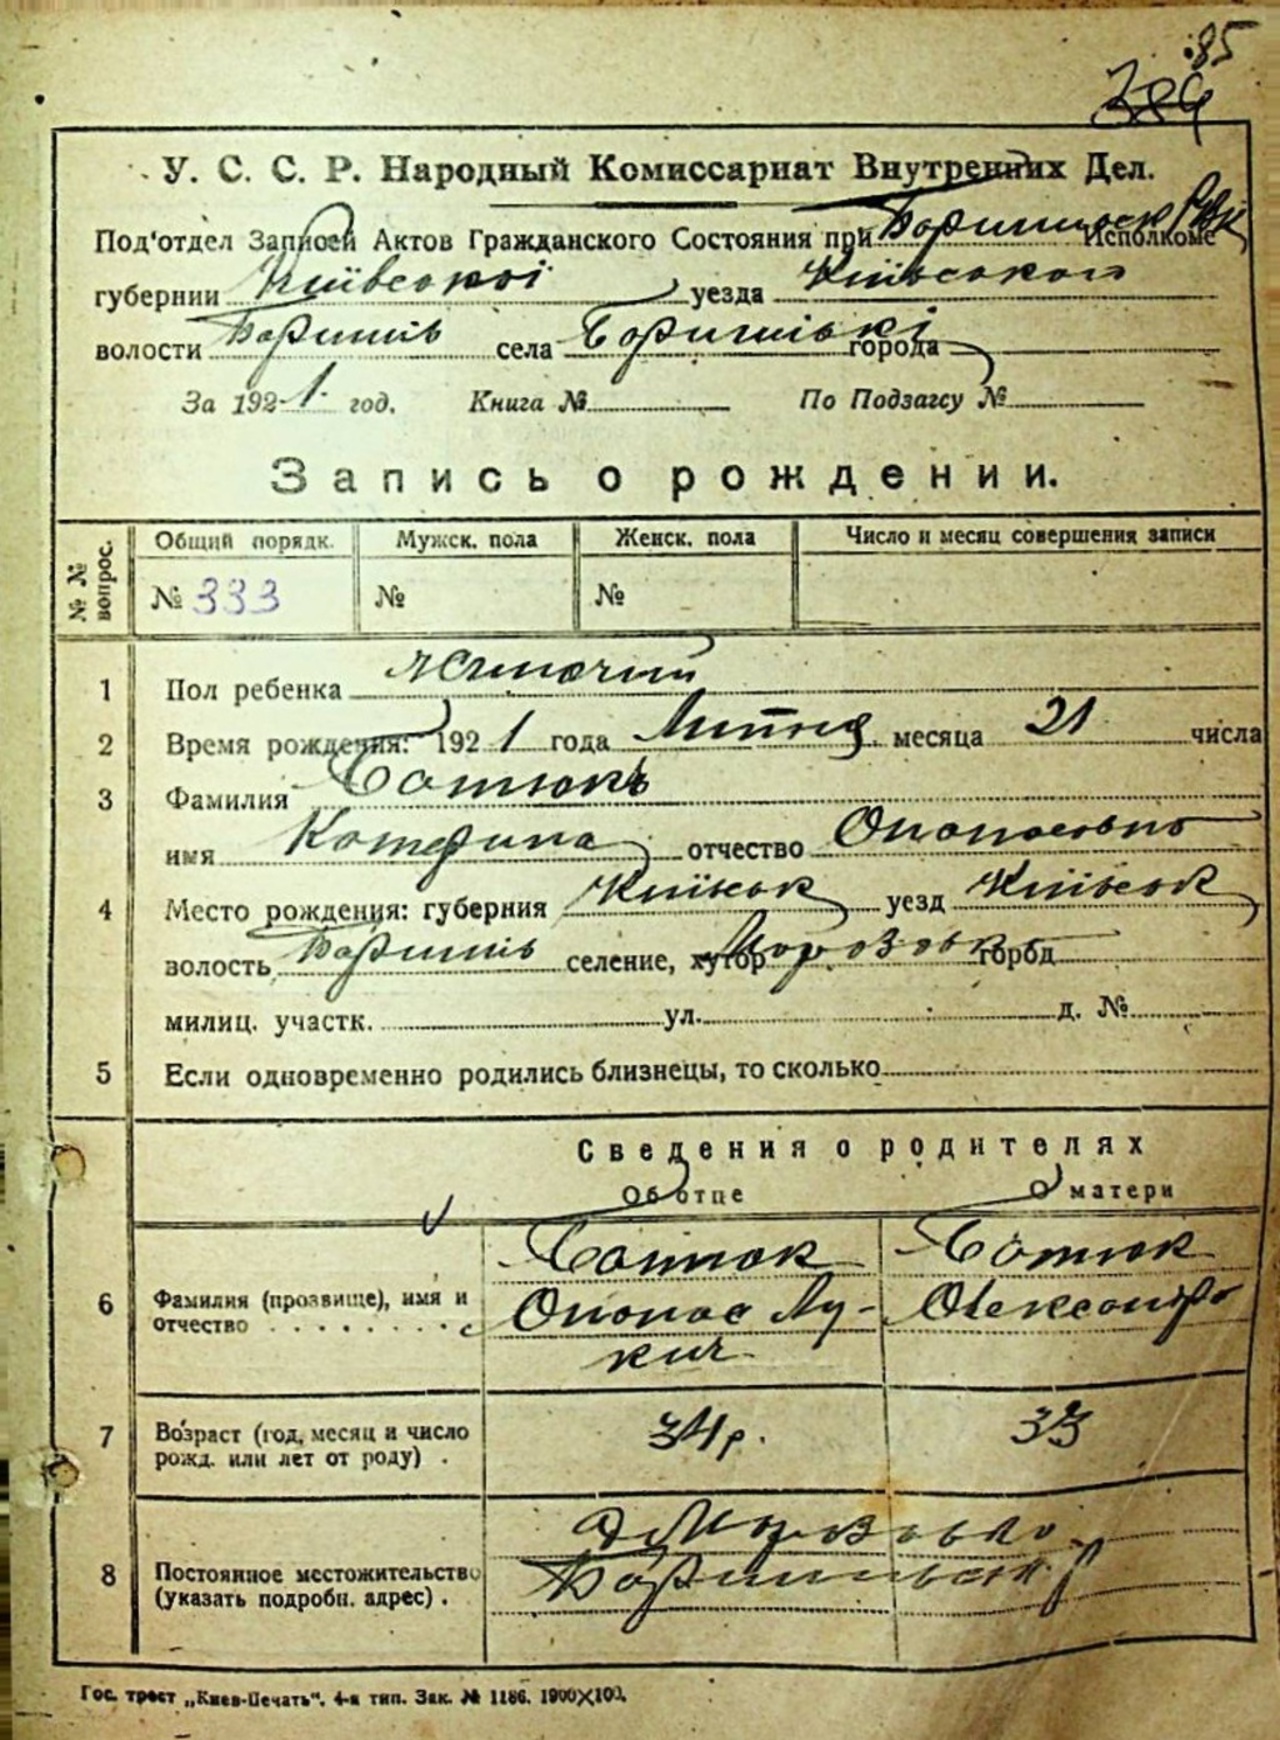 85
389
У. С. С. Р. Народный Комиссариат Внутренних Дел.
Под'отдел Записей Актов Гражданского Состояния при Боришпольск РВК Исполкоме
губернии Київської уезда Київського
волости Боришпів села Боришполі города
За 1921 год. Книга № По Подзагсу №
Запись о рождении.
№ № вопрос. Общий порядк. Мужск. пола Женск. пола Число и месяц совершения записи
№ 333 № №
1 Пол ребенка жіночий
2 Время рождения: 1921 года Липня месяца 21 числа
3 Фамилия Батюкъ
имя Катерина отчество Опанасовна
4 Место рождения: губерния Київськ уезд Київськ
волость Боришпів селение, хутор город
милиц. участк. ул. д. №
5 Если одновременно родились близнецы, то сколько
Сведения о родителях
Об отце О матери
6 Фамилия (прозвище), имя и отчество Батюк Опанас Лукич Батюк Олександра
7 Возраст (год, месяц и число рожд. или лет от роду) 34 р. 33
8 Постоянное местожительство (указать подробн. адрес)
Гос. трест „Киев-Печать“. 4-я тип. Зак. № 1186. 1900×100.